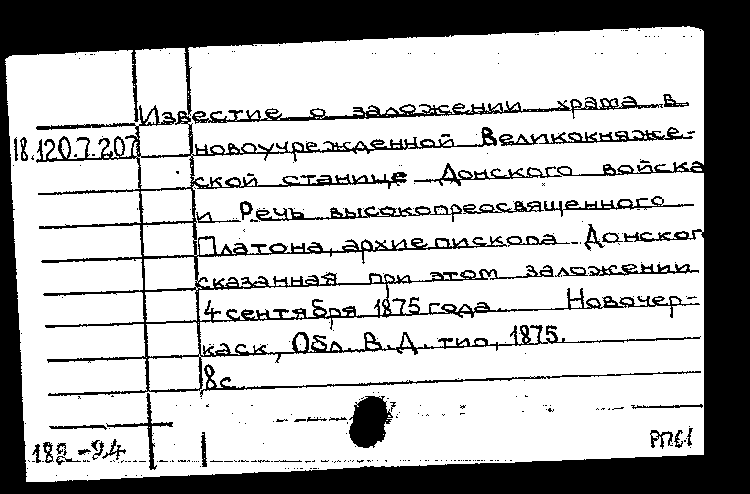 Известие о заложении храма в
18.120.7.207 новоучрежденной Великокняже-
ской станице Донского войска
и Речь высокопреосвященного
Платона, архиепископа Донског
сказанная при этом заложении
4 сентября 1875 года. Новочер-
каск, Обл. В. Д. тип, 1875.
8с
182-94